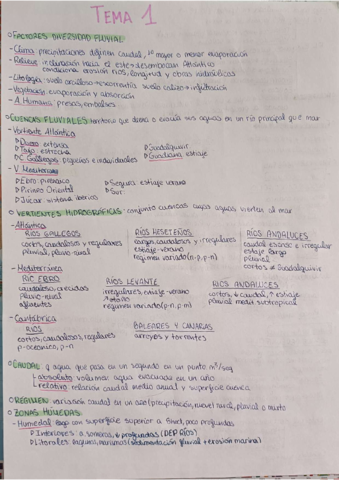 TEMA 1
o FACTORES DIVERSIDAD FLUVIAL
- Clima: precipitaciones definen caudal, tº mayor o menor evaporación
- Relieve: inclinación hacia el este → desembocan Atlántico
condiciona erosión ríos, longitud y obras hidráulicas
- Litología: suelo arcilloso → escorrentía suelo calizo → infiltración
- Vegetación: evaporación y absorción
- A. Humana: presas, embalses
o CUENCAS FLUVIALES: territorio que drena o evacúa sus aguas en un río principal que mar
- Vertiente Atlántica
▷ Duero: extensa
▷ Guadalquivir
▷ Tajo: estrecha
▷ Guadiana: estiaje
▷ C. Gallegos: pequeños e individuales
- V. Mediterránea
▷ Ebro: pirenaica
▷ Segura: estiaje verano
▷ Pirineo Oriental
▷ Sur:
▷ Júcar: sistema ibérico
o VERTIENTES HIDROGRÁFICAS: conjunto cuencas cuyas aguas vierten al mar
- Atlántica
RÍOS GALLEGOS
RÍOS MESETEÑOS
RÍOS ANDALUCES
cortos, caudalosos y regulares
largos, caudalosos y irregulares
caudal escaso e irregular
pluvial, pluvio-nival
estiaje: verano
estiaje largo
régimen variado (n-p, p-n)
pluvial
cortos ≠ Guadalquivir
- Mediterránea
RÍO EBRO
RÍOS LEVANTE
RÍOS ANDALUCES
caudaloso, crecidas
irregulares, estiaje-verano
cortos, ↓ caudal, ↑ estiaje
pluvio-nival
pluvial medit. subtropical
afluentes
régimen variado (p-n, p-m)
- Cantábrica
RÍOS
BALEARES Y CANARIAS
cortos, caudalosos, regulares
arroyos y torrentes
p-oceánico, p-n
o CAUDAL: q agua que pasa en un segundo en un punto m³/seg
↳ absoluto: volumen agua evacuado en un año
↳ relativo: relación caudal medio anual y superficie cuenca
o RÉGIMEN: variación caudal en un año (precipitación, nieve) nival, pluvial o mixto
o ZONAS HÚMEDAS
- Humedal: lago con superficie superior a 8 ha, poco profundas
▷ Interiores: a. somera, ↓ profundas (DEP RÍOS)
▷ Litorales: lagunas, marismas (sedimentación fluvial + erosión marina)